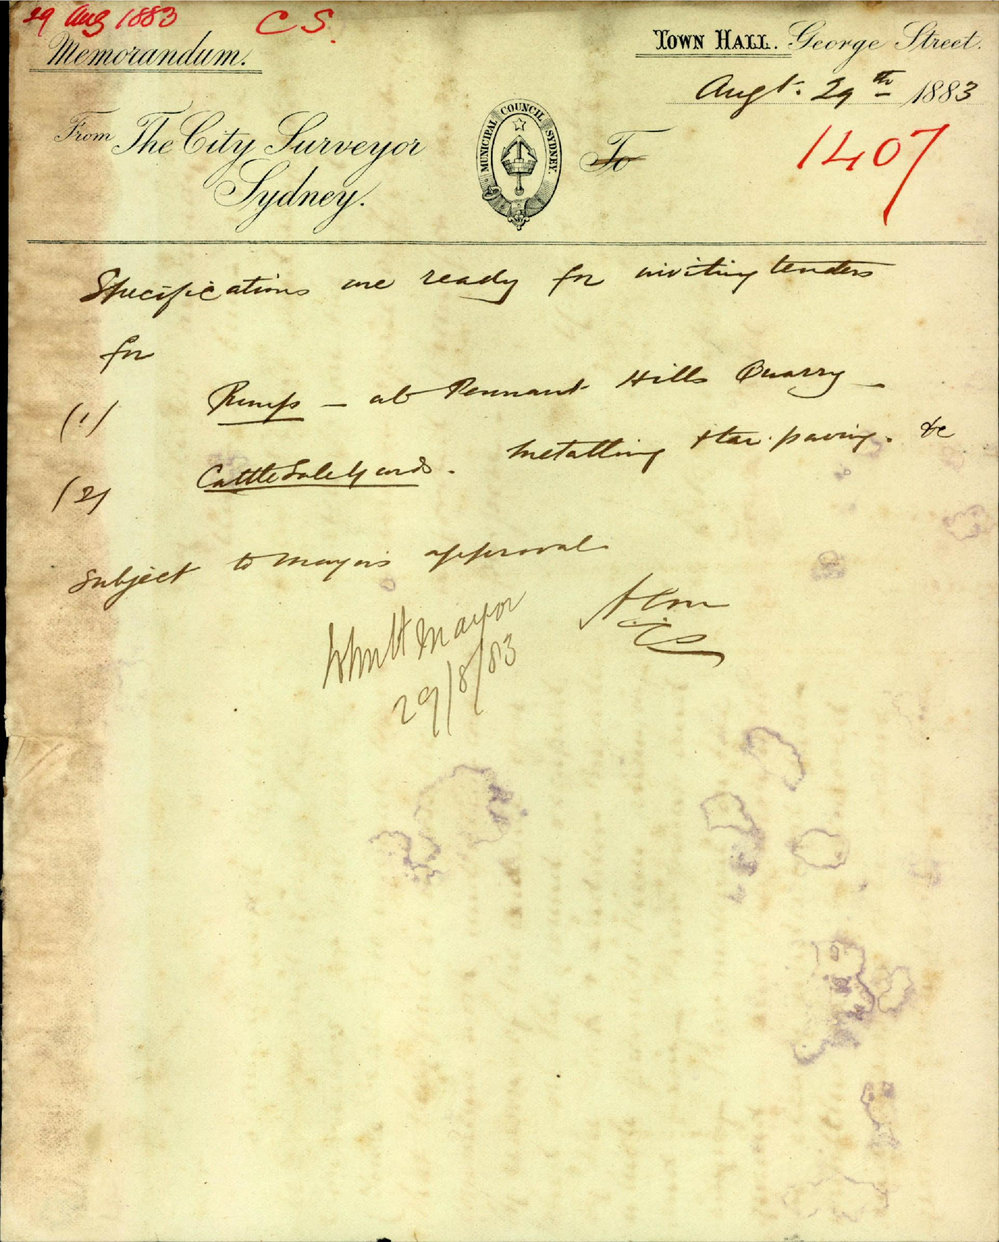 29 Aug 1883 C S.
Memorandum.
TOWN HALL. George Street.
Augt. 29th 1883
From The City Surveyor
Sydney.
MUNICIPAL COUNCIL SYDNEY.
To
1407
Specifications are ready for inviting tenders
for
(1) Pump - at Pennant Hills Quarry -
(2) Cattle Sale Yards. Metalling & tar paving. &c
Subject to Mayor's approval
Mayor
C S
29/8/83